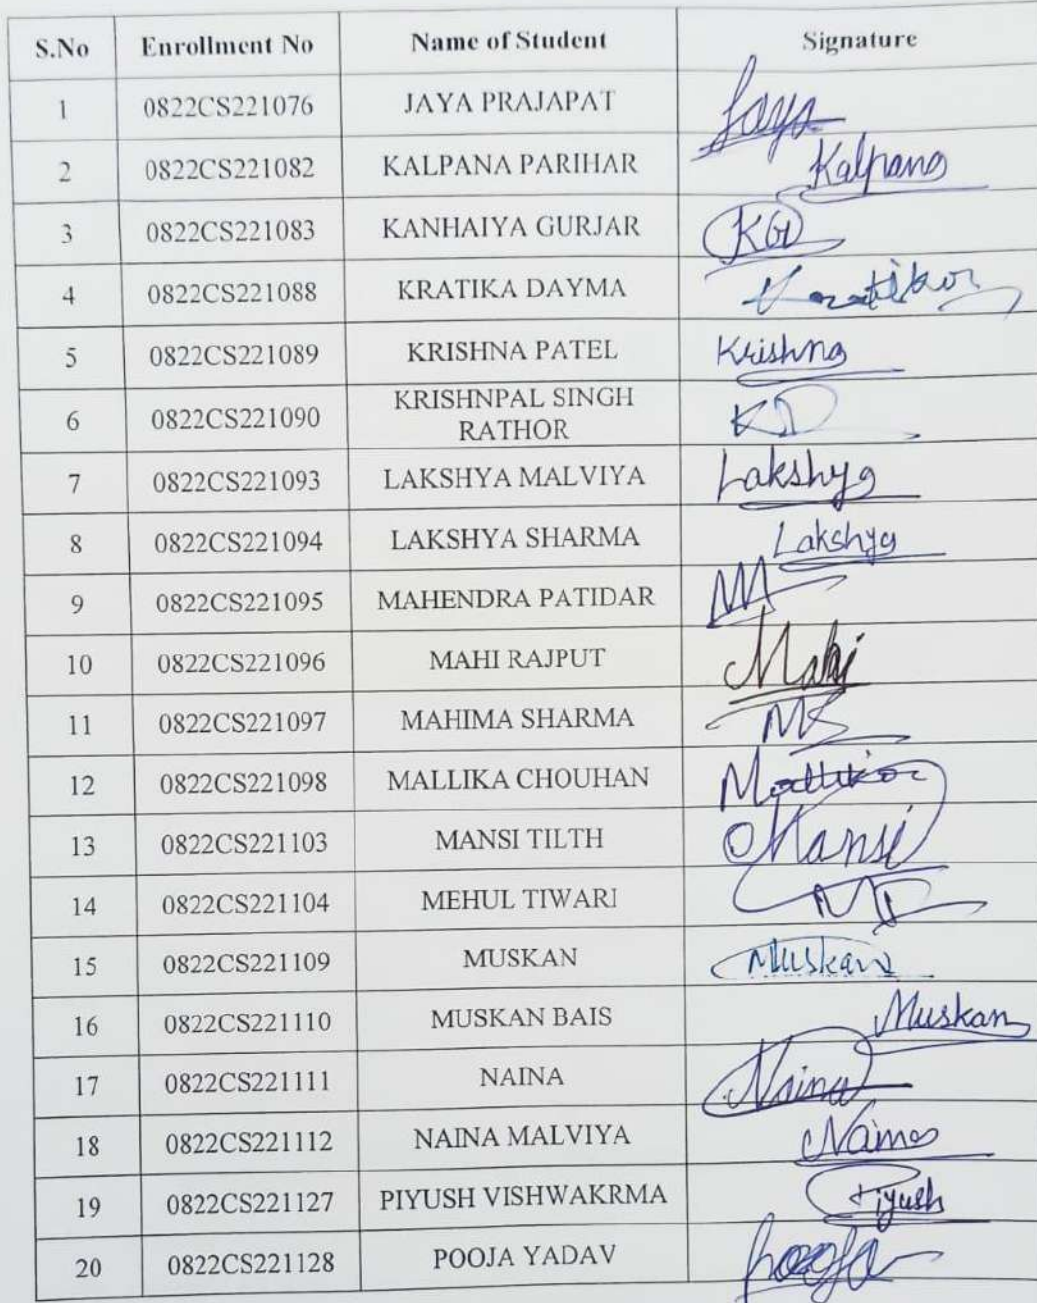 S.No Enrollment No Name of Student Signature
1 0822CS221076 JAYA PRAJAPAT Jaya
2 0822CS221082 KALPANA PARIHAR Kalpana
3 0822CS221083 KANHAIYA GURJAR KG
4 0822CS221088 KRATIKA DAYMA Kratika
5 0822CS221089 KRISHNA PATEL Krishna
6 0822CS221090 KRISHNPAL SINGH
RATHOR
7 0822CS221093 LAKSHYA MALVIYA Lakshya
8 0822CS221094 LAKSHYA SHARMA Lakshya
9 0822CS221095 MAHENDRA PATIDAR
10 0822CS221096 MAHI RAJPUT Mahi
11 0822CS221097 MAHIMA SHARMA MS
12 0822CS221098 MALLIKA CHOUHAN Mallika
13 0822CS221103 MANSI TILTH Mansi
14 0822CS221104 MEHUL TIWARI MT
15 0822CS221109 MUSKAN Muskan
16 0822CS221110 MUSKAN BAIS Muskan
17 0822CS221111 NAINA Naina
18 0822CS221112 NAINA MALVIYA Naina
19 0822CS221127 PIYUSH VISHWAKRMA Piyush
20 0822CS221128 POOJA YADAV Pooja